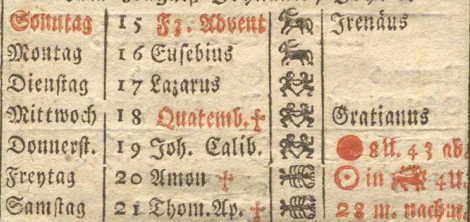 Sonntag 15 F3. Advent Irenäus
Montag 16 Eusebius
Dienstag 17 Lazarus
Mittwoch 18 Quatemb. Gratianus
Donnerst. 19 Joh. Calib. 8 U. 43 ab
Freytag 20 Amon in 4 U
Samstag 21 Thom. Ap. 28 m. nachm